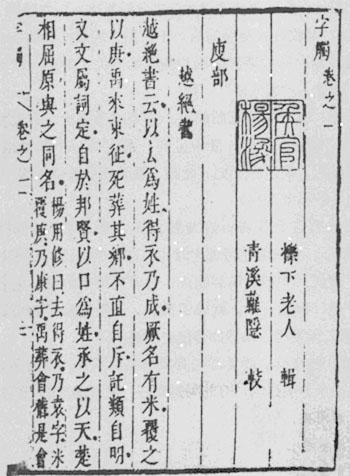 字觸 卷之一
櫟下老人 輯
青溪隱
廋部
越絕書
越絕書云以去為姓得衣乃成厥名有米覆之
以庚禹來東征死葬其鄉不直自斥託類自明
又文屬詞定自於邦賢以口為姓承之以天楚
相屈原與之同名
楊用修曰去得衣乃袁字米
覆庚乃康字禹葬會稽是會
字觸 卷之一 一